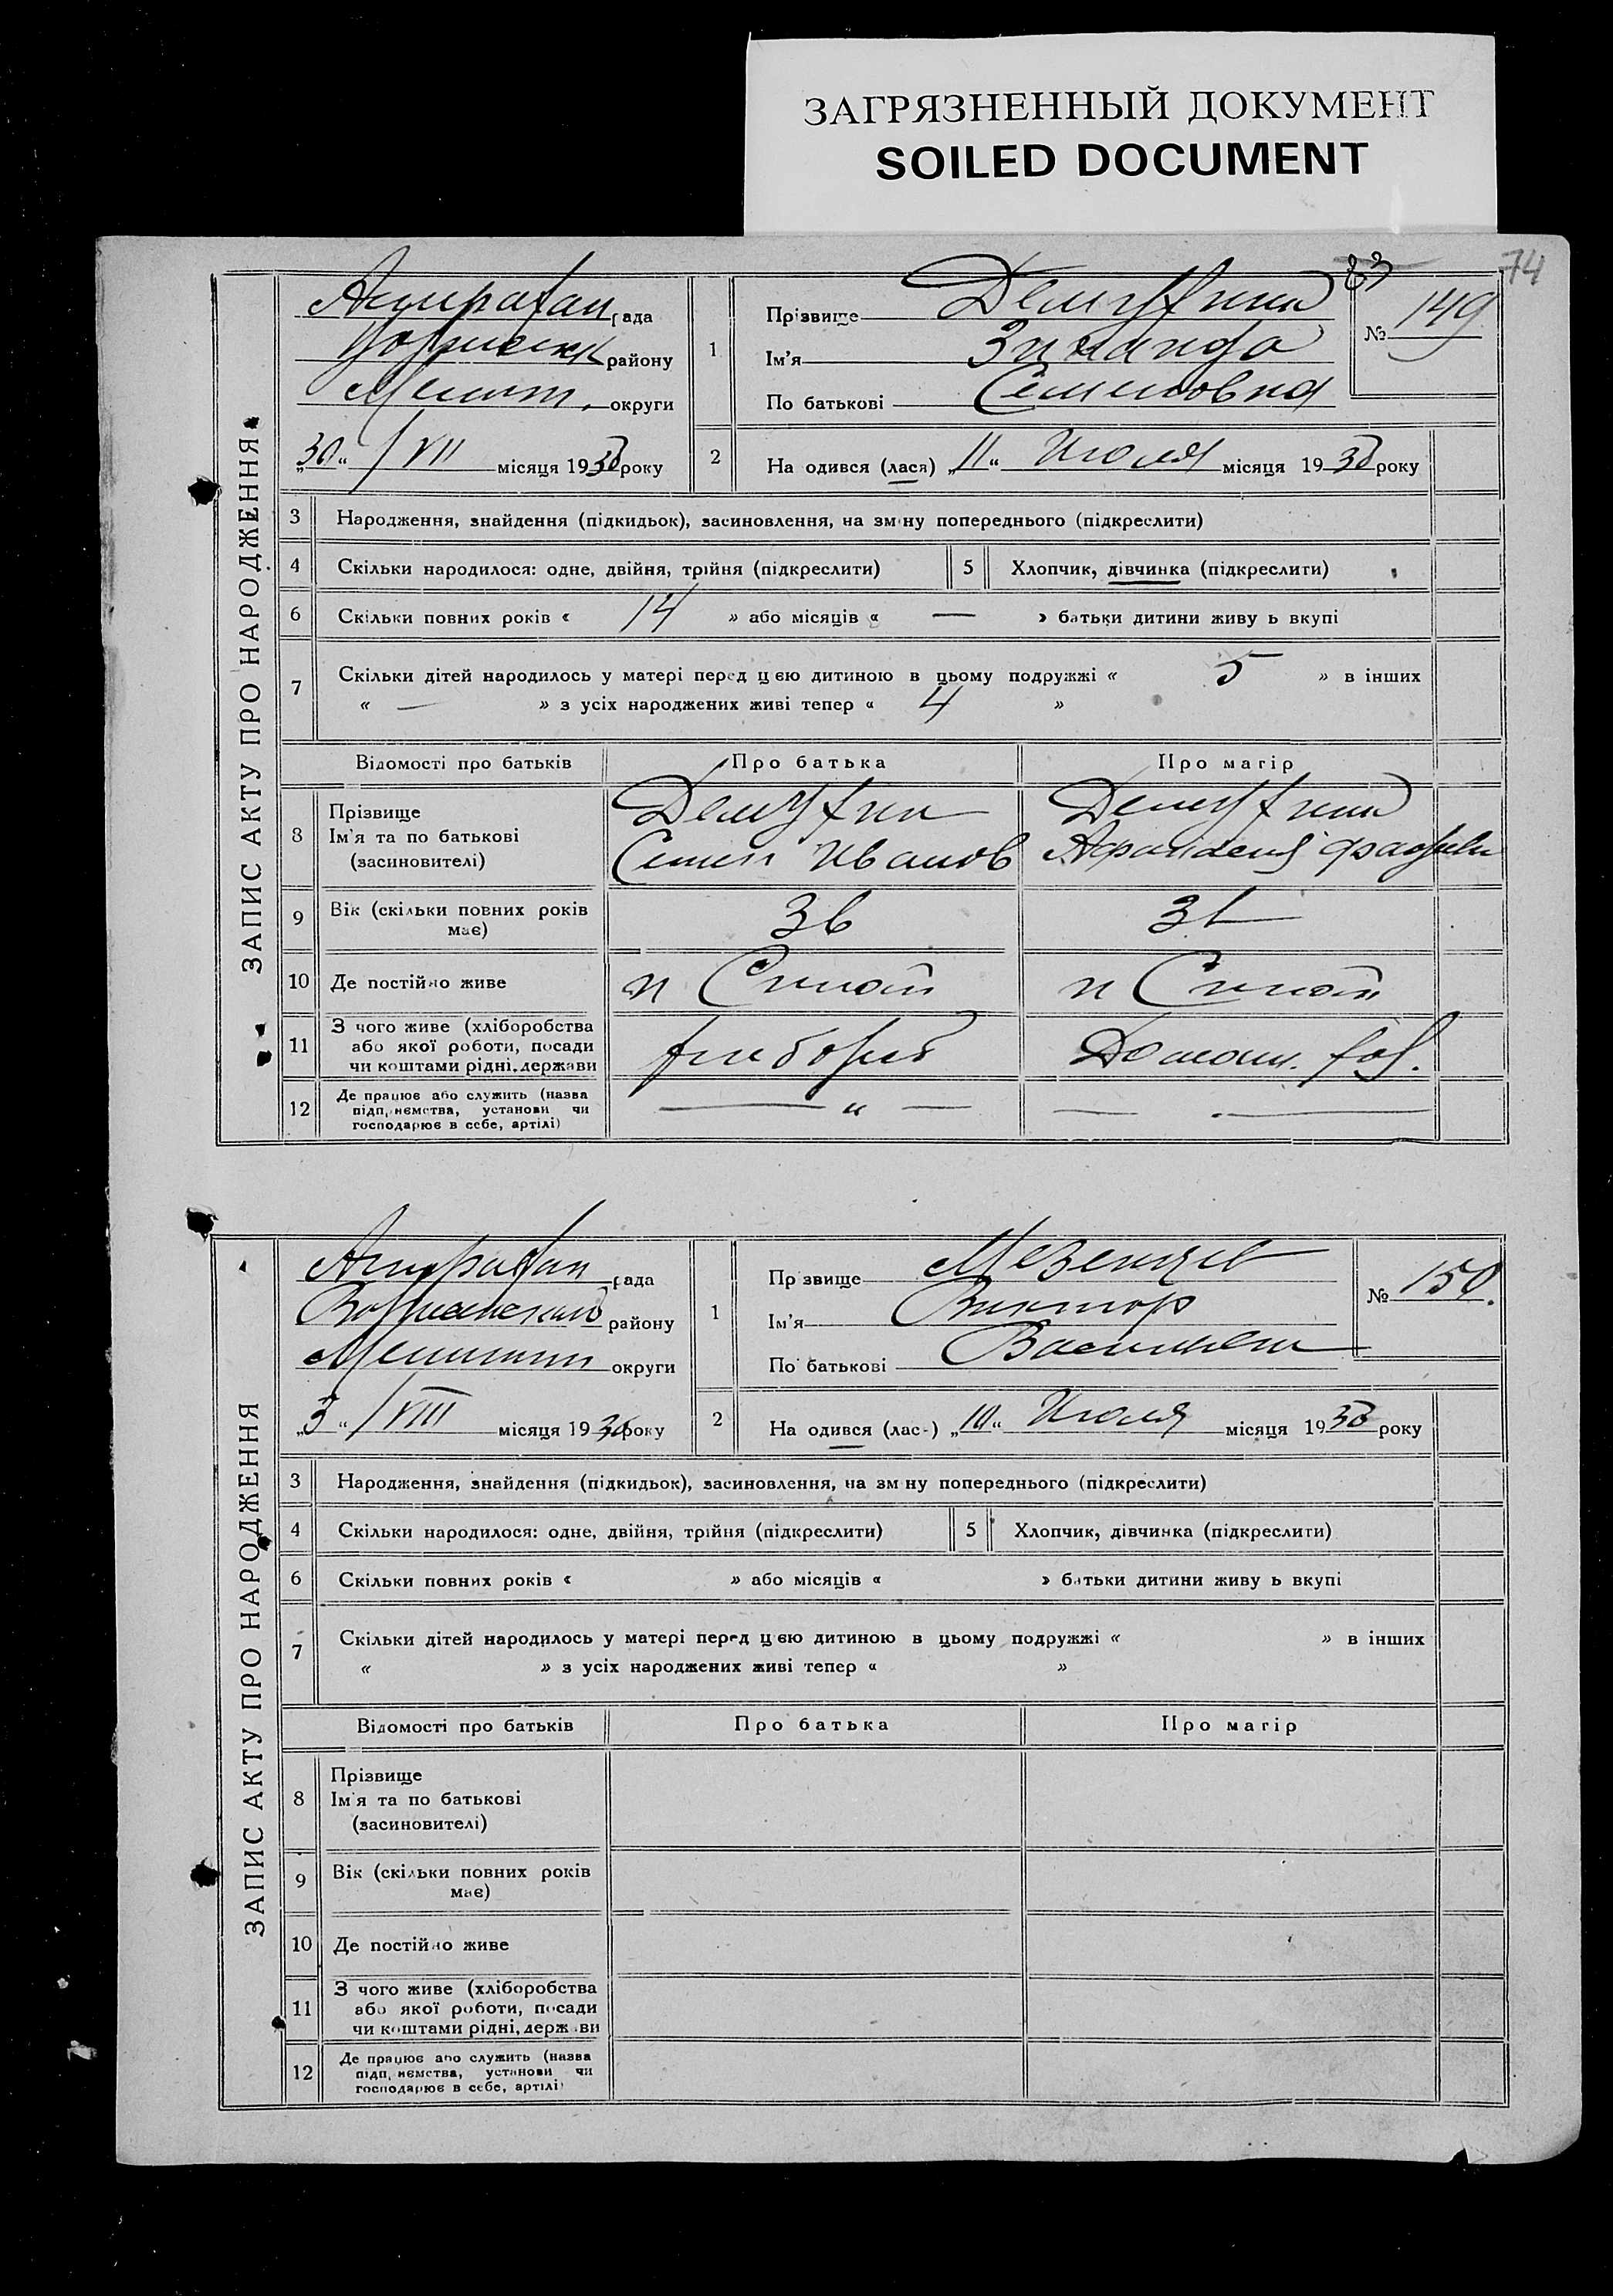 ЗАГРЯЗНЕННЫЙ ДОКУМЕНТ
SOILED DOCUMENT
74
ЗАПИС АКТУ ПРО НАРОДЖЕННЯ
Астрахан рада
району
округи
„30“ VII місяця 1930 року
1
Прізвище
Ім'я Зинаида
По батькові Семеновна
№ 149
2 На одився (лася) „11“ Июля місяця 1930 року
3 Народження, знайдення (підкидьок), засиновлення, на зм ну попереднього (підкреслити)
4 Скільки народилося: одне, двійня, трійня (підкреслити) 5 Хлопчик, дівчинка (підкреслити)
6 Скільки повних років « 14 » або місяців « — » батьки дитини живу ь вкупі
7 Скільки дітей народилось у матері перед цією дитиною в цьому подружжі « 5 » в інших
« — » з усіх народжених живі тепер « 4 »
Відомості про батьків Про батька Про матір
8 Прізвище
Ім'я та по батькові Семен Иванов
(засиновителі)
9 Вік (скільки повних років має) 36
10 Де постійно живе
11 З чого живе (хліборобства або якої роботи, посади чи коштами рідні, держави хлібороб Домашн.
12 Де працює або служить (назва підприємства, установи чи господарює в себе, артілі) — „ — —
ЗАПИС АКТУ ПРО НАРОДЖЕННЯ
Астрахан рада
району
округи
„3“ VIII місяця 1930 року
1
Пр звище Мезенцев
Ім'я Виктор
По батькові
№ 150
2 На одився (лас-) „10“ Июля місяця 1930 року
3 Народження, знайдення (підкидьок), засиновлення, на зм ну попереднього (підкреслити)
4 Скільки народилося: одне, двійня, трійня (підкреслити) 5 Хлопчик, дівчинка (підкреслити)
6 Скільки повних років « » або місяців « » батьки дитини живу ь вкупі
7 Скільки дітей народилось у матері перед цією дитиною в цьому подружжі « » в інших
« » з усіх народжених живі тепер « »
Відомості про батьків Про батька Про матір
8 Прізвище
Ім'я та по батькові
(засиновителі)
9 Вік (скільки повних років
має)
10 Де постійно живе
11 З чого живе (хліборобства
або якої роботи, посади
чи коштами рідні, держави
12 Де працює або служить (назва
підприємства, установи чи
господарює в себе, артілі)